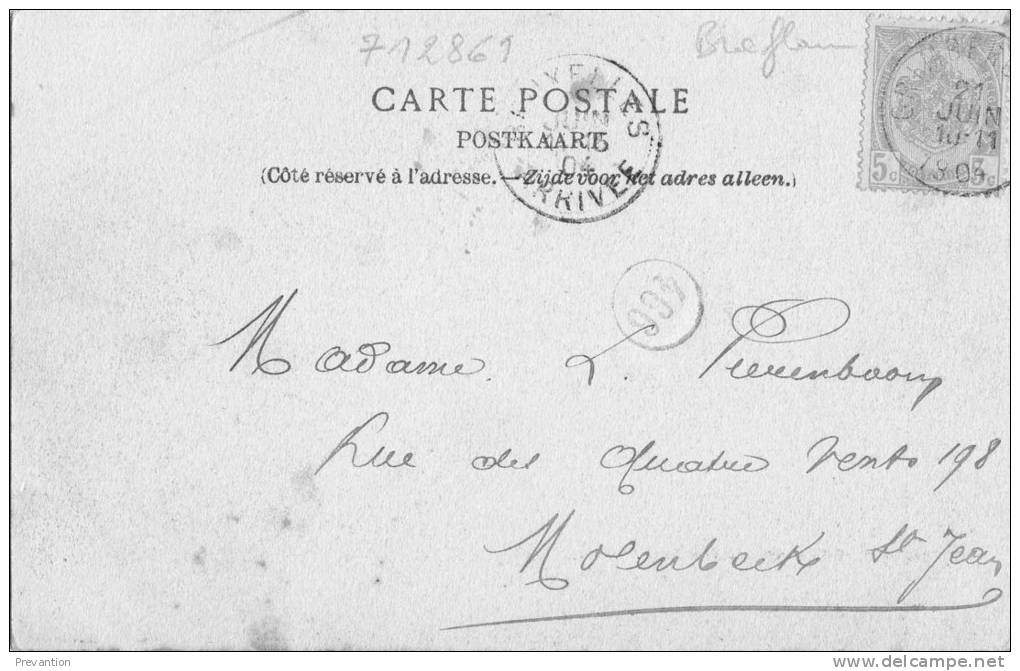 712861
CARTE POSTALE
POSTKAART
(Côté réservé à l'adresse. — Zijde voor het adres alleen.)
JUIN
04
ARRIVEE
21
JUIN
10-11
1904
5c 5c
Madame L.
Rue des Quatre Vents 198
Molenbeek St Jean
Prevantion
delcampe.net